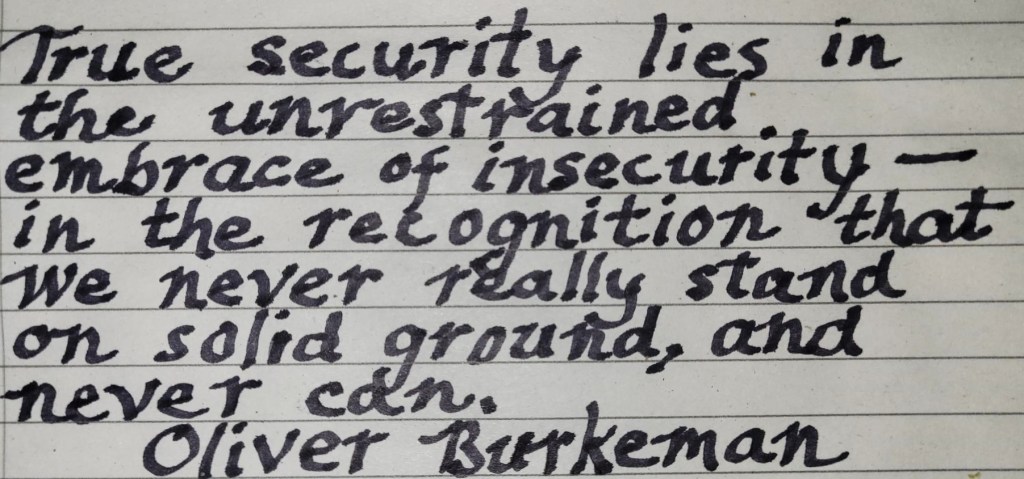 True security lies in
the unrestrained
embrace of insecurity —
in the recognition that
we never really stand
on solid ground, and
never can.
Oliver Burkeman